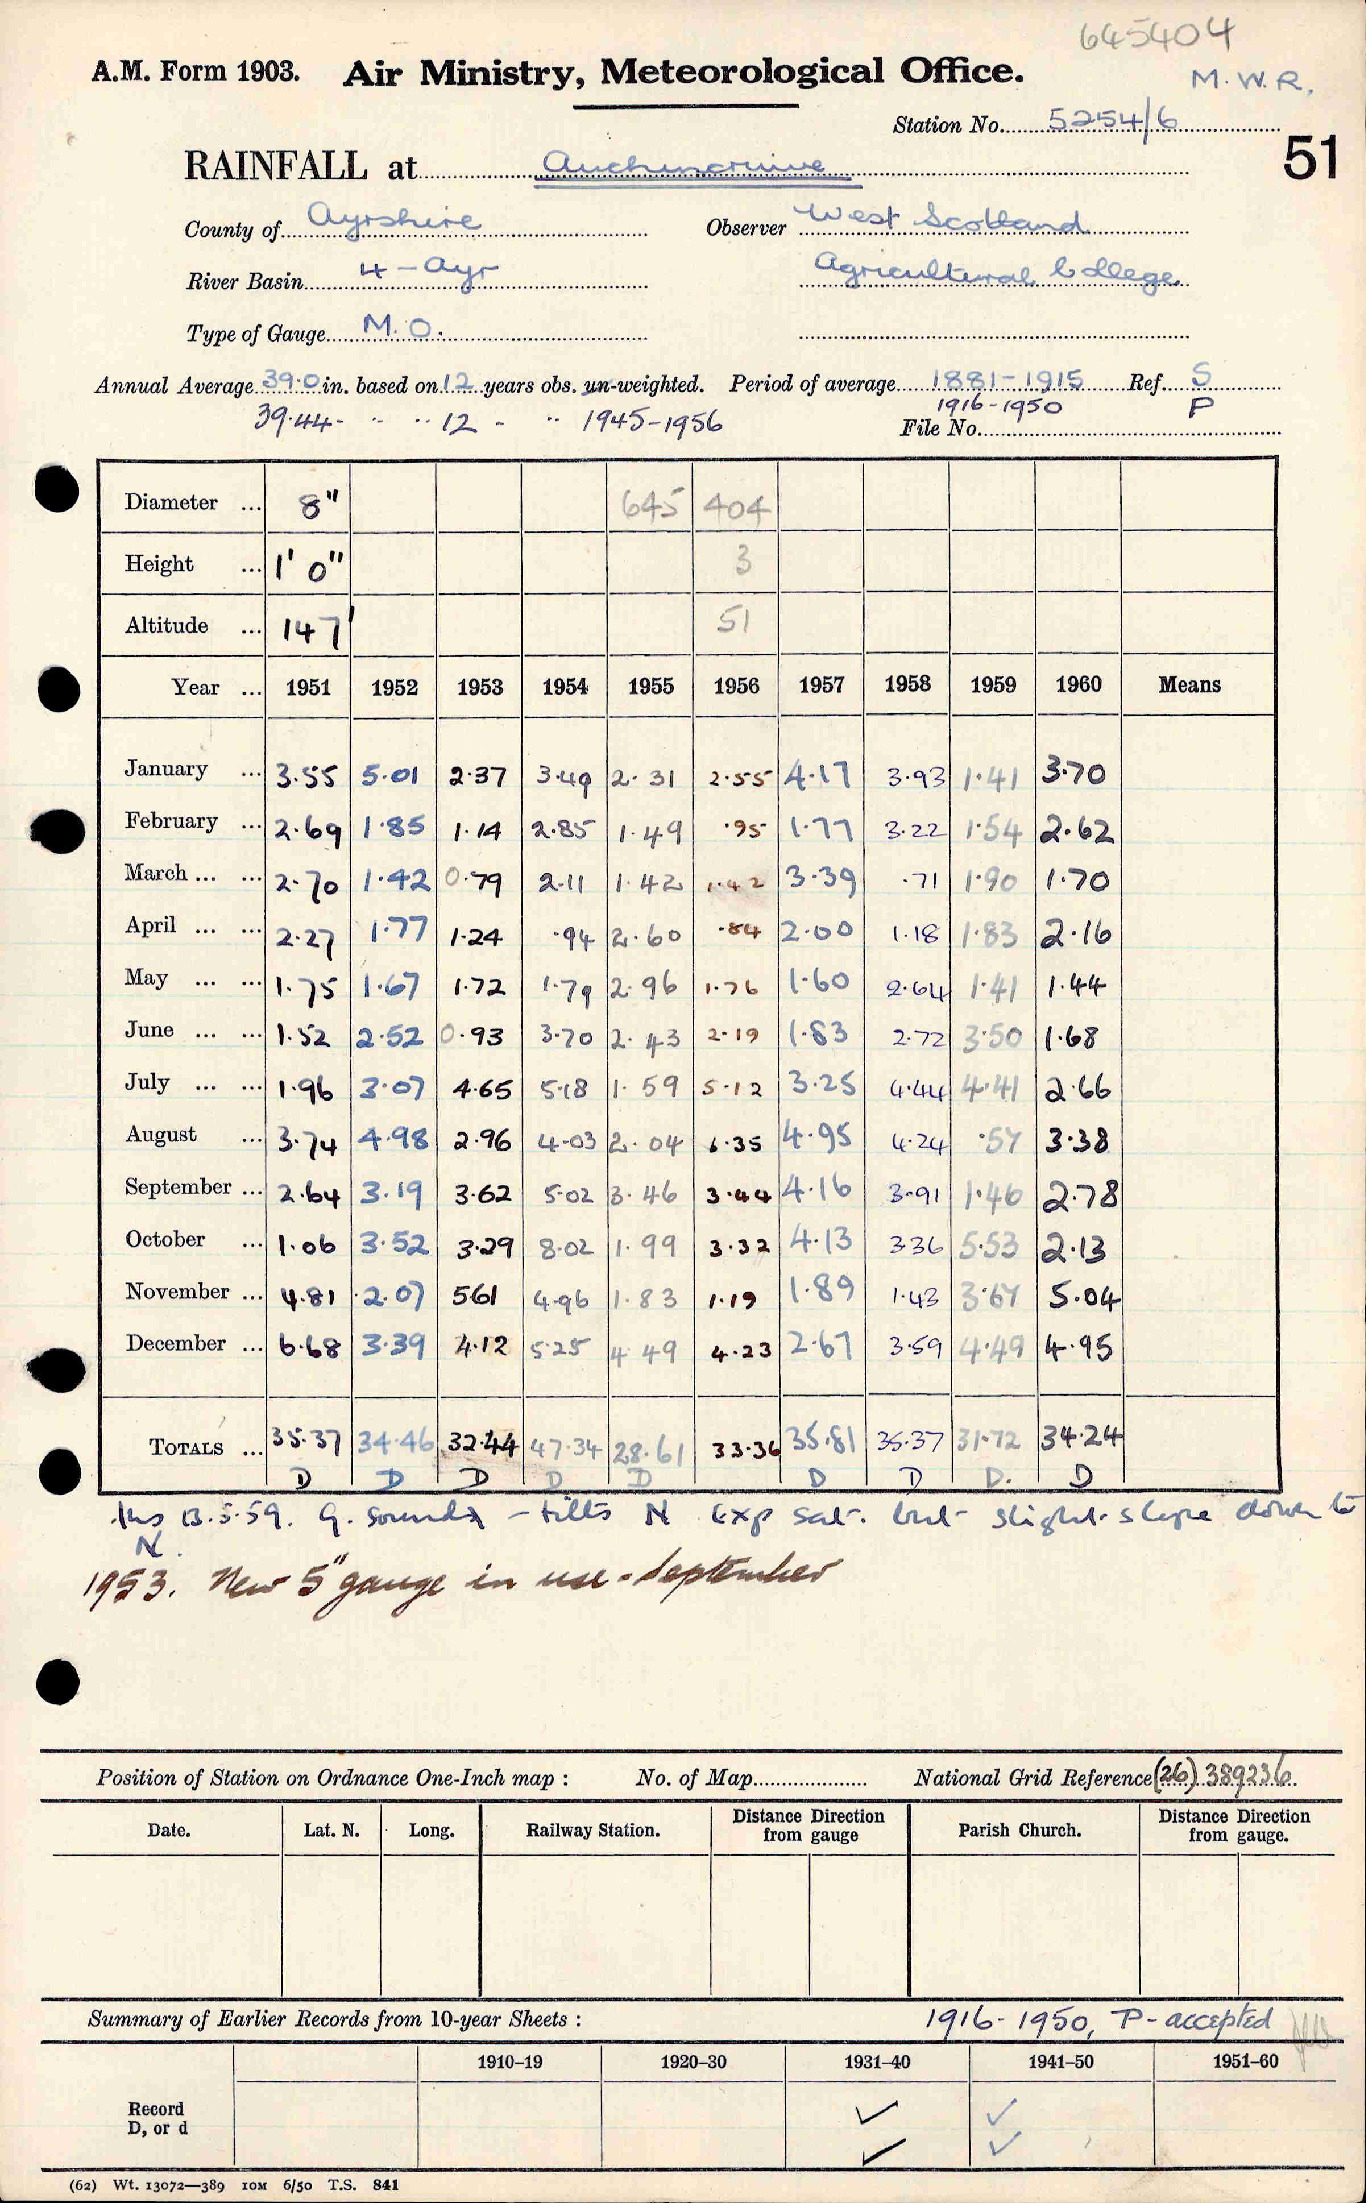 645404
A.M. Form 1903. Air Ministry, Meteorological Office. M.W.R.
Station No. 5254/6
RAINFALL at Auchincruive 51
County of Ayrshire Observer West Scotland
River Basin 4 - Ayr Agricultural College
Type of Gauge M.O.
Annual Average 39.0 in. based on 12 years obs. un-weighted. Period of average 1881-1915 Ref. S
39.44 - " .. 12 - .. 1945-1956 1916-1950 P
File No.
Diameter ... 8" 645 404
Height ... 1' 0" 3
Altitude ... 147' 51
Year ... 1951 1952 1953 1954 1955 1956 1957 1958 1959 1960 Means
January ... 3.55 5.01 2.37 3.49 2.31 2.55 4.17 3.93 1.41 3.70
February ... 2.69 1.85 1.14 2.85 1.49 .95 1.77 3.22 1.54 2.62
March ... ... 2.70 1.42 0.79 2.11 1.42 1.42 3.39 .71 1.90 1.70
April ... ... 2.27 1.77 1.24 .94 2.60 .84 2.00 1.18 1.83 2.16
May ... ... 1.75 1.67 1.72 1.79 2.96 1.76 1.60 2.64 1.41 1.44
June ... ... 1.52 2.52 0.93 3.70 2.43 2.19 1.83 2.72 3.50 1.68
July ... ... 1.96 3.07 4.65 5.18 1.59 5.12 3.25 4.44 4.41 2.66
August ... 3.74 4.98 2.96 4.03 2.04 6.35 4.95 4.24 .57 3.38
September ... 2.64 3.19 3.62 5.02 3.46 3.44 4.16 3.91 1.46 2.78
October ... 1.06 3.52 3.29 8.02 1.99 3.32 4.13 336 5.53 2.13
November ... 4.81 2.07 561 4.96 1.83 1.19 1.89 1.43 3.67 5.04
December ... 6.68 3.39 4.12 5.25 4.49 4.23 2.67 3.59 4.49 4.95
TOTALS ... 35.37 34.46 32.44 47.34 28.61 33.36 35.81 35.37 31.72 34.24
D D D D D D D D. D
Ins 13.5.59. G. sound - tilts N Exp sat. but slight slope down to
N.
1953. New 5" gauge in use - September
Position of Station on Ordnance One-Inch map : No. of Map National Grid Reference (26) 389236
Date. Lat. N. Long. Railway Station. Distance Direction from gauge Parish Church. Distance Direction from gauge.
Summary of Earlier Records from 10-year Sheets : 1916-1950, P - accepted
1910–19 1920–30 1931–40 1941–50 1951–60
Record ✓ ✓
D, or d ✓ ✓
(62) Wt. 13072—389 10M 6/50 T.S. 841